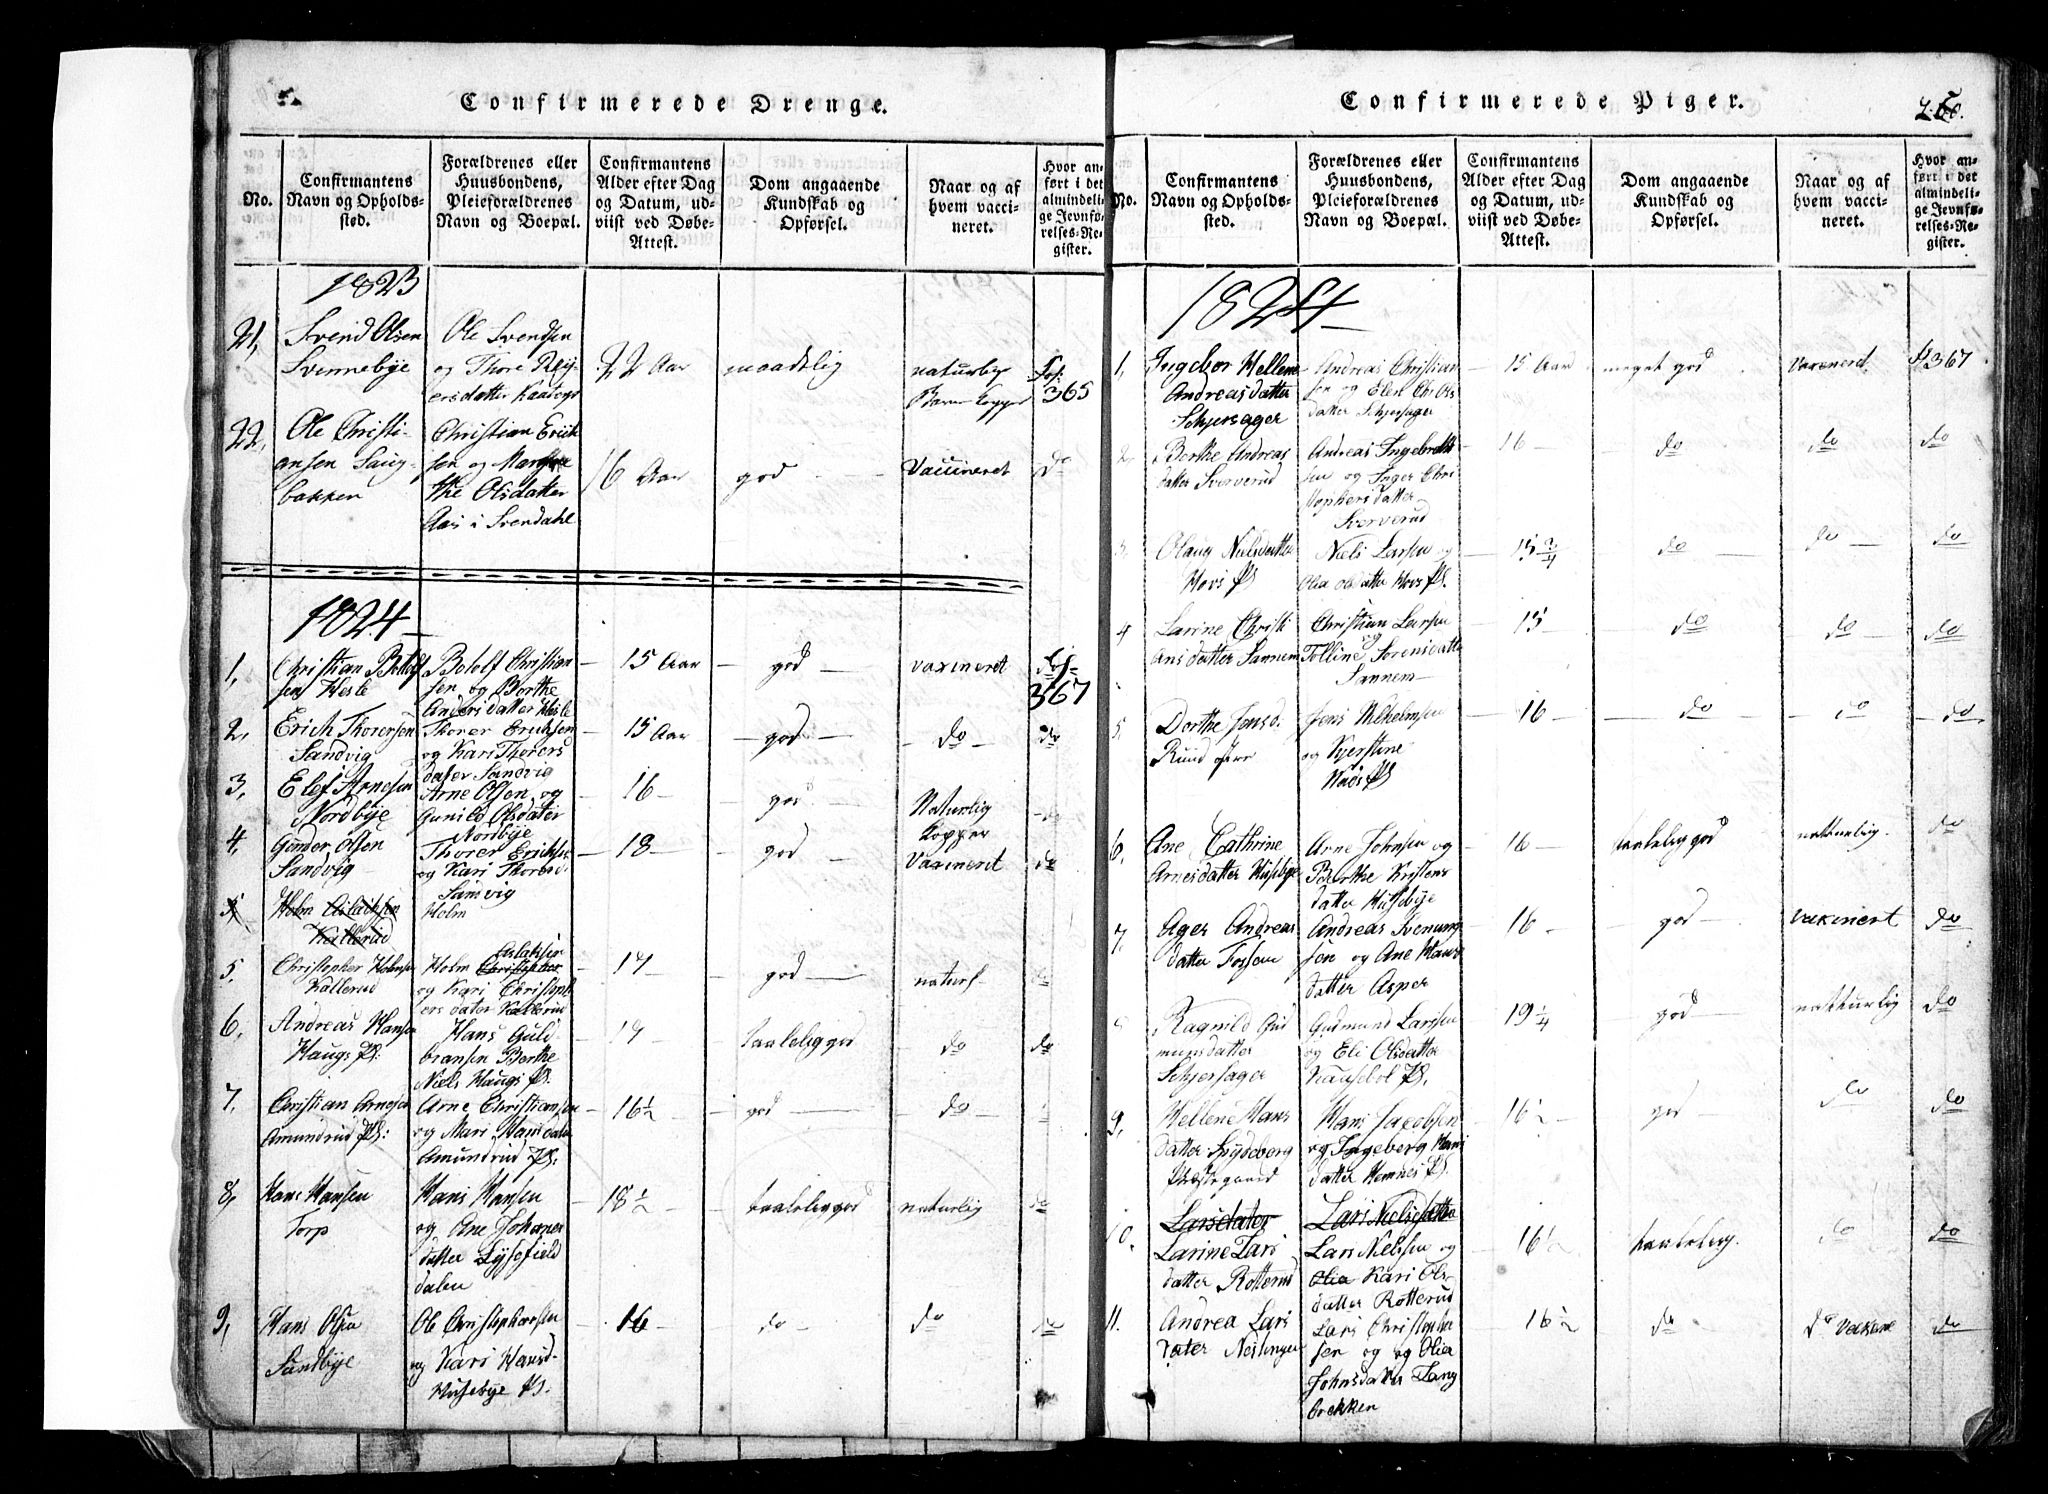 Confirmerede Drenge.
No.
Confirmantens
Navn og Opholds-
sted.
Forældrenes eller
Huusbondens,
Pleieforældrenes
Navn og Boepæl.
Confirmantens
Alder efter Dag
og Datum, ud-
viist ved Døbe-
Attest.
Dom angaaende
Kundskab og
Opførsel.
Naar og af
hvem vacci-
neret.
Hvor an-
ført i det
almindeli-
ge Jevnfø-
relses-Re-
gister.
1823
21, Svend Olsen
Svennebye
Ole Svendsen
og Thore
ersdatter
22 Aar maadelig naturlig
Kopper
Fol: 365
22, Ole Christi-
ansen Laug-
bakken
Christian Erik
sen og Margre
the Olsdatter
Aas i Svendahl
16 Aar god Vaccineret do
1824
1, Christian Bottolf
sen Hesle
Botolf Christian
sen og Borthe
Andersdatter Hesle
15 Aar god vaxineret Fol-
367
2, Erich Thorersen
Sandvig
Thorer Eriksen
og Kari Thorers
dater Sandvig
15 Aar god do do
3, Elef Arnesen
Nordbye
Arne Olsen og
Gunild Olsdater
Nordbye
16 god Naturlig
Kopper do
4, Gunder Olsen
Sandvig
Thorer Eriksen
og Kari Thoresd
Sandvig
18 god Vaxineret do
5 Holm Aslaksen
Kallerud
Holm
5. Christopher Holmsen
Kallerud
Holm Christopher Aslaksen
og Kari Christoph
ersdater Kallerud
17 god naturl. do
6, Andreas Hansen
Haugs Pl:
Hans Guld-
bransen Berthe
Niels Haugs Pl.
17 taaleliggod do do
7, Christian Arnesen
Amundrud Pl:
Arne Christiansen
og Mari Hansdatter
Amundrud Pl:
16½ god do
8, Hans Hansen
Torp
Hans Hansen
og Ane Johanes
datter Lysefield
dalen
18½ taaleliggod naturlig do
9, Hans Olsen
Sandbye
Ole Christophersen
og Kari Hansd-
Husebye Pl.
16 do do do
Confirmerede Piger.
No.
Confirmantens
Navn og Opholds-
sted.
Forældrenes eller
Huusbondens,
Pleieforældrenes
Navn og Boepæl.
Confirmantens
Alder efter Dag
og Datum, ud-
viist ved Døbe-
Attest.
Dom angaaende
Kundskab og
Opførsel.
Naar og af
hvem vacci-
neret.
Hvor an-
ført i det
almindeli-
ge Jevnfø-
relses-Re-
gister.
1824
1, Ingebor Hellene
Andreasdatter
Schjersager
Andreas Christian
sen og Elen Ols
datter Schjersager
15 Aar meget god Vaxinerd 367
2 Berthe Andreas
datter Sververud
Andreas Ingebreth
sen og Inger Chri
stophersdatter
Sververud
16 do do do
3. Olaug Nielsdatter
Hovs Pl
Niels Larsen og
Olia olsdatter Hovs Pl.
15¾ do do do
4 Larine Christi
ansdatter Sannem
Christian Larsen
og
Tolline Sorensdatter
Sannem
15 do do do
5. Dorthe Jensd.
Ruud
Jens Vilhelmsen
og Kjerstine
16 do do do
6. Ane Cathrine
Arnesdatter Husebye
Arne Johnsen og
Berthe Kristens
datter Husebye
16 taalelig god natturlig. do
7. Ager Andreas
datter Fossum
Andreas Svenung
sen og Ane Hans
datter Asper
16 god vaxinert do
8 Ragnild Gud
munsdatter
Schjersager
Gudmund Larssen
og Eli Olsdatter
Pl.
19¼ god natturlig do
9, Hellene Hans
datter Spydeberg
Præstegaard
Hans Jacobsen
og Ingeberg Hans
datter Hemnes Pl.
16½ god do do
10. Larsdater
Larine Lars
datter Rotterud
Lars Nielsdatter
Lars Nielssen og
Olia Kari Ols-
datter Rotterud
16½ taalelig. do do
11. Andrea Lars
dater
Lars Christopher
sen og og Olia
Johnsdatter Lang
brekken
16½ do do do